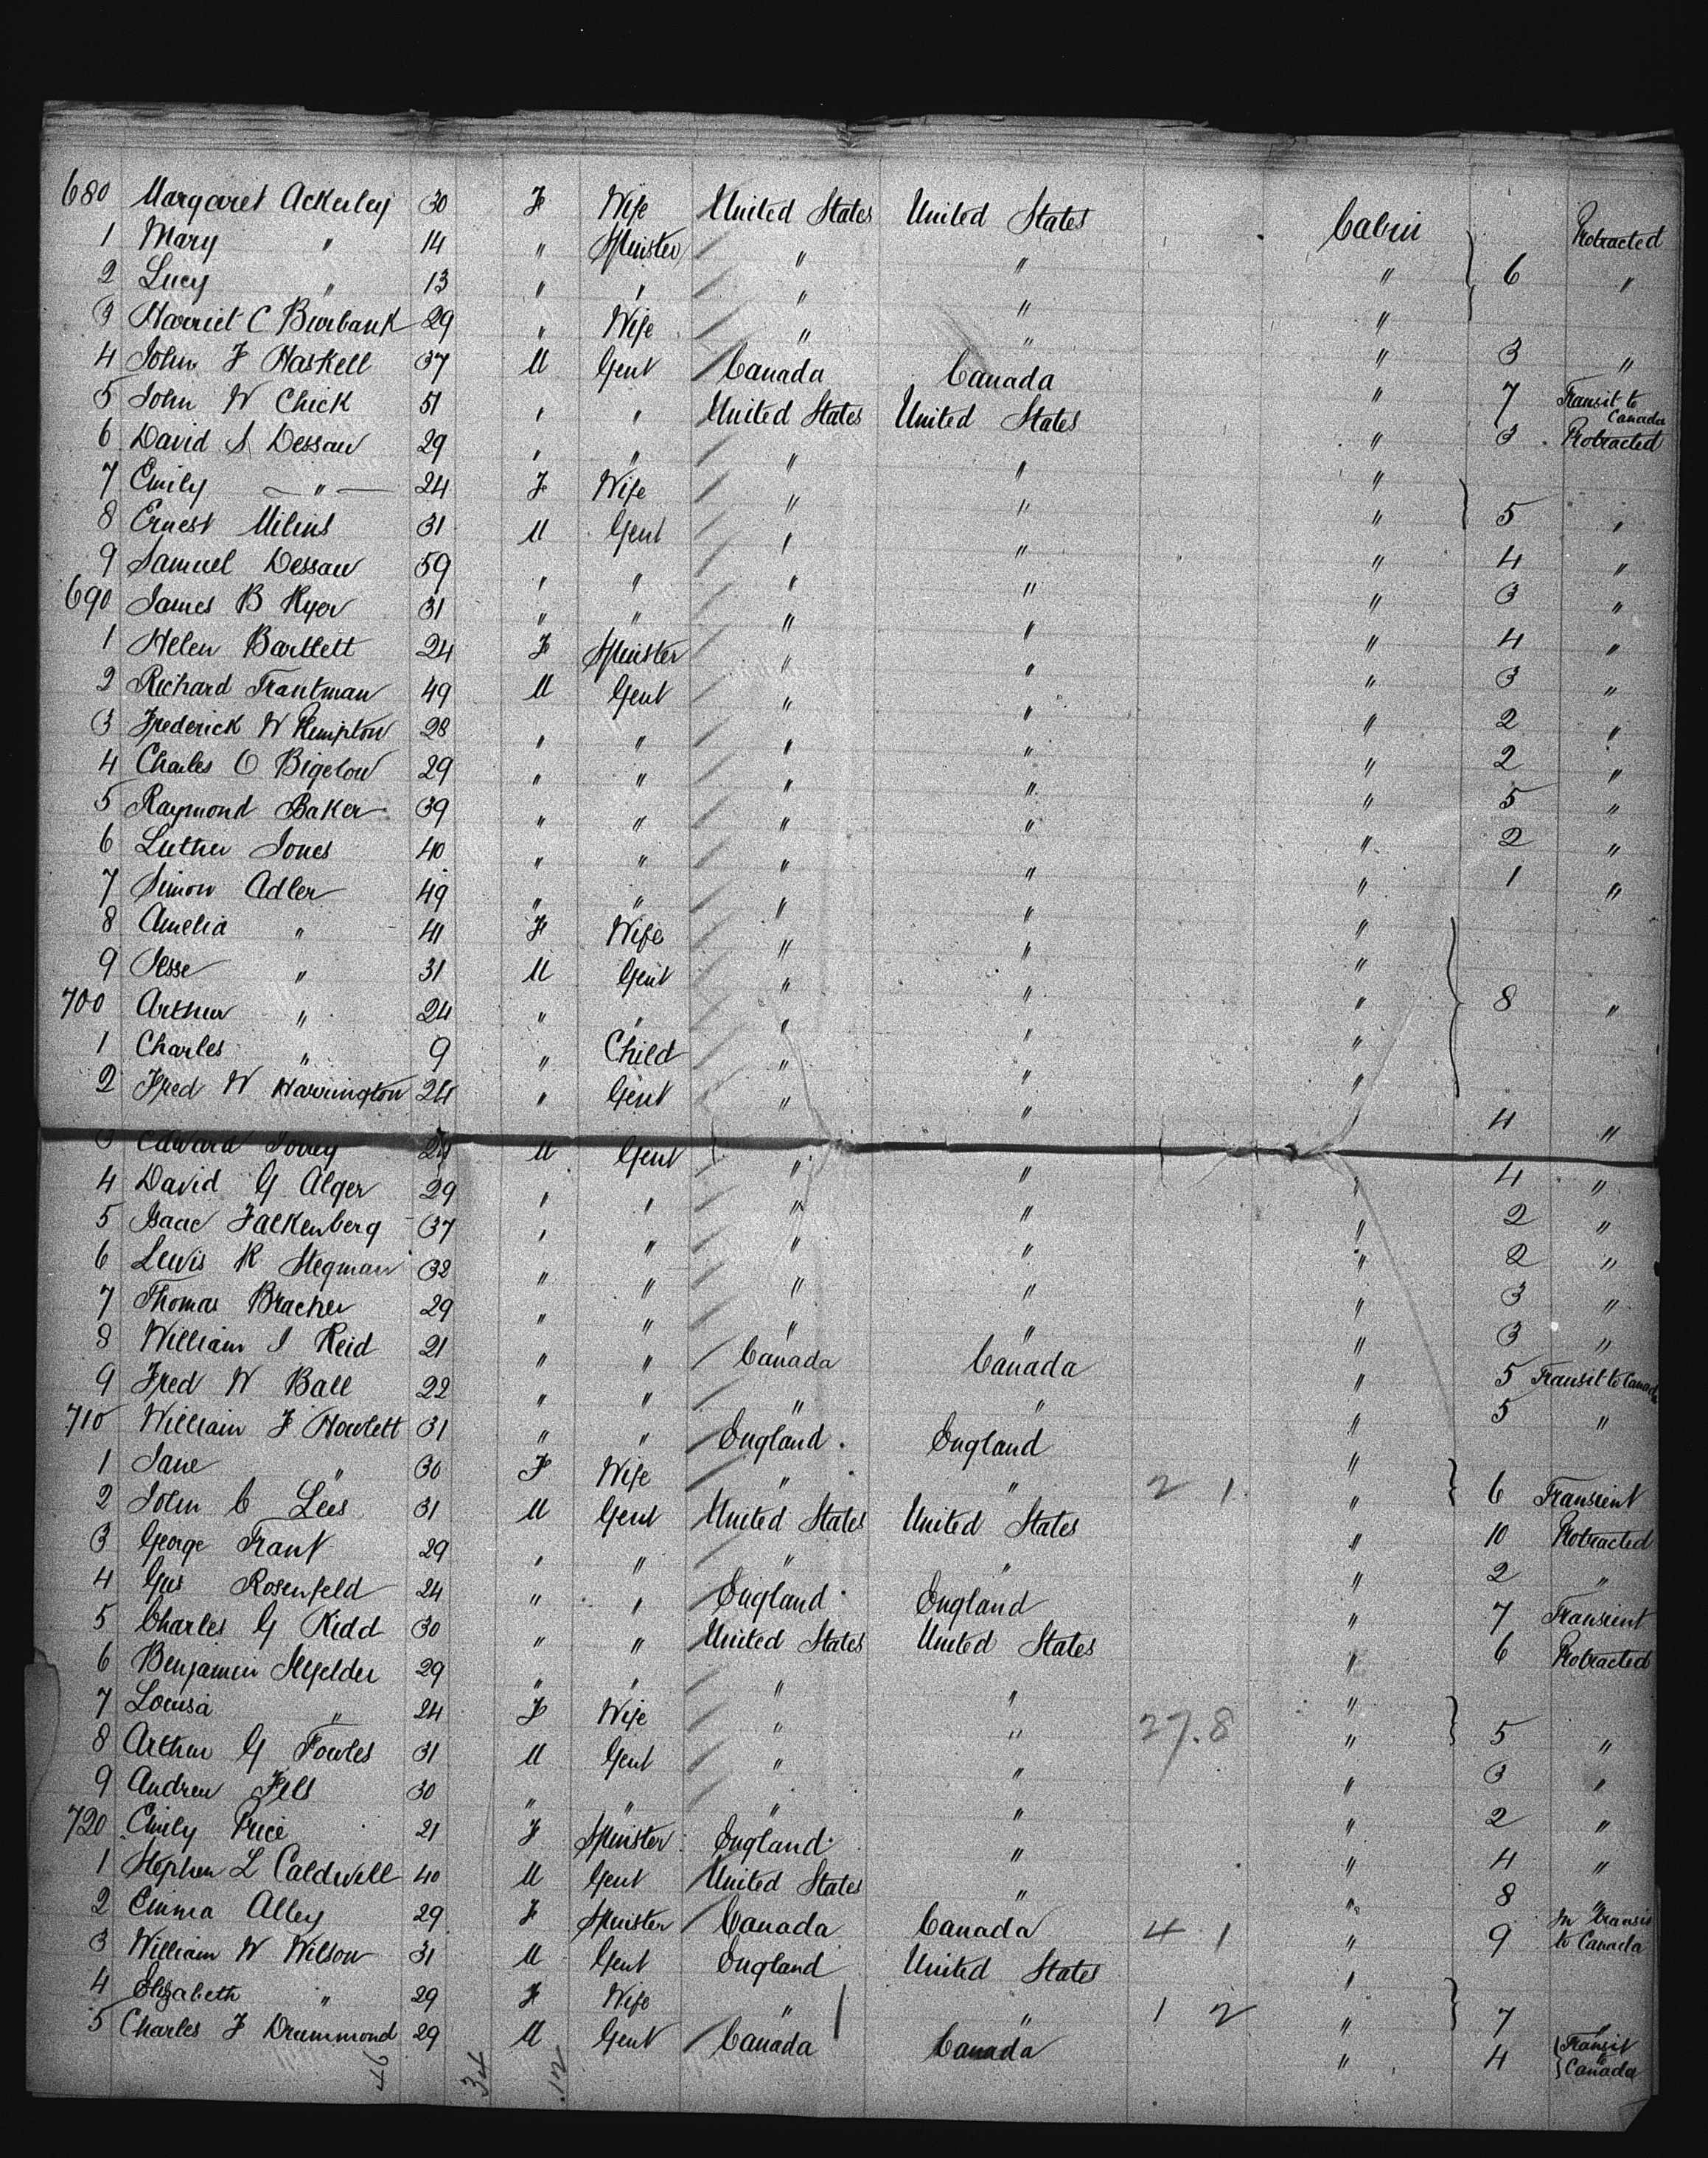 680 Margaret Ackerley 30 F Wife United States United States Cabin Protracted
1 Mary " 14 " Spinster " " " 6 "
2 Lucy " 13 " " " " "
3 Harriet C Burbank 29 " Wife " " " 3 "
4 John F Haskell 37 M Gent Canada Canada " 7 Transit to Canada
5 John W Chick 51 " " United States United States " 3 Protracted
6 David S Dessau 29 " " " " "
7 Emily " 24 F Wife " " " 5 "
8 Ernest 31 M Gent " " " 4 "
9 Samuel Dessau 59 " " " " " 3 "
690 James B Kyer 31 " " " " " 4 "
1 Helen Bartlett 24 F Spinster " " " 3 "
2 Richard Trautman 49 M Gent " " " 2 "
3 Frederick W Kempton 28 " " " " " 2 "
4 Charles O Bigelow 29 " " " " " 5 "
5 Raymond Baker 39 " " " " " 2 "
6 Luther Jones 40 " " " " " 1 "
7 Simon Adler 49 " " " " "
8 Amelia " 41 F Wife " " "
9 Jesse " 31 M Gent " " " 8 "
700 Arthur " 24 " " " " "
1 Charles " 9 " Child " " "
2 Fred W Harrington 24 " Gent " " 4 "
3 Edward Torrey M Gent " " " 4 "
4 David G Alger 29 " " " " " 2 "
5 Isaac Falkenberg 37 " " " " " 2 "
6 Lewis R Stegman 32 " " " " " 3 "
7 Thomas Bracher 29 " " " " " 3 "
8 William J Reid 21 " " Canada Canada " 5 Transit to Canada
9 Fred W Ball 22 " " " " " 5 "
710 William F Howlett 31 " " England England "
1 Jane " 30 F Wife " " 2 1 " 6 Transient
2 John C Lees 31 M Gent United States United States " 10 Protracted
3 George Frank 29 " " " " " 2 "
4 Gus Rosenfeld 24 " " England England " 7 Transient
5 Charles G Kidd 30 " " United States United States " 6 Protracted
6 Benjamin 29 " " " " "
7 Louisa " 24 F Wife " " 27.8 " 5 "
8 Arthur G Fowles 31 M Gent " " " 3 "
9 Andrew Fels 30 " " " " " 2 "
720 Emily Price 21 F Spinster England " " 4 "
1 Stephen L Caldwell 40 M Gent United States " " 8 "
2 Emma Alley 29 F Spinster Canada Canada 4 1 " 9 In transit to Canada
3 William W Wilson 31 M Gent England United States "
4 Elizabeth " 29 F Wife " " 1 2 " 7 "
5 Charles F Drummond 29 M Gent Canada Canada " 4 Transit to Canada
46 34 12